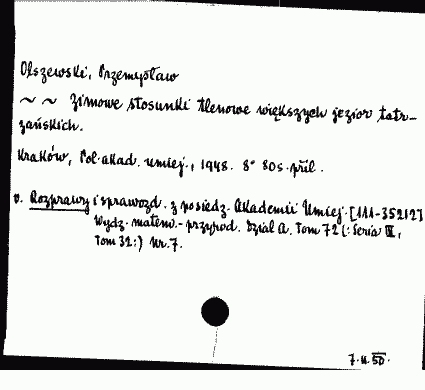 Olszewski, Przemysław
~ ~ Zimowe stosunki tlenowe większych jezior tatr-
zańskich.
Kraków, Pol. akad. umiej., 1948. 8° 80s. příl.
v. Rozprawy i sprawozd. z posiedz. Akademii Umiej. [111-35212]
Wydz. matem.-przyrod. Dział A. Tom 72 (: Seria III,
Tom 32:) Nr. 7.
7.II.50.